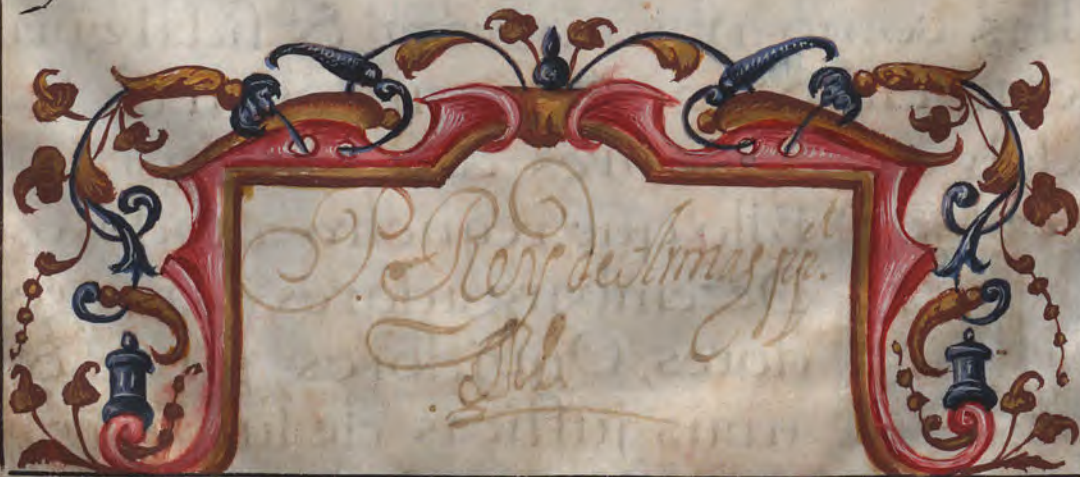 P. Rey de Armas pp.al